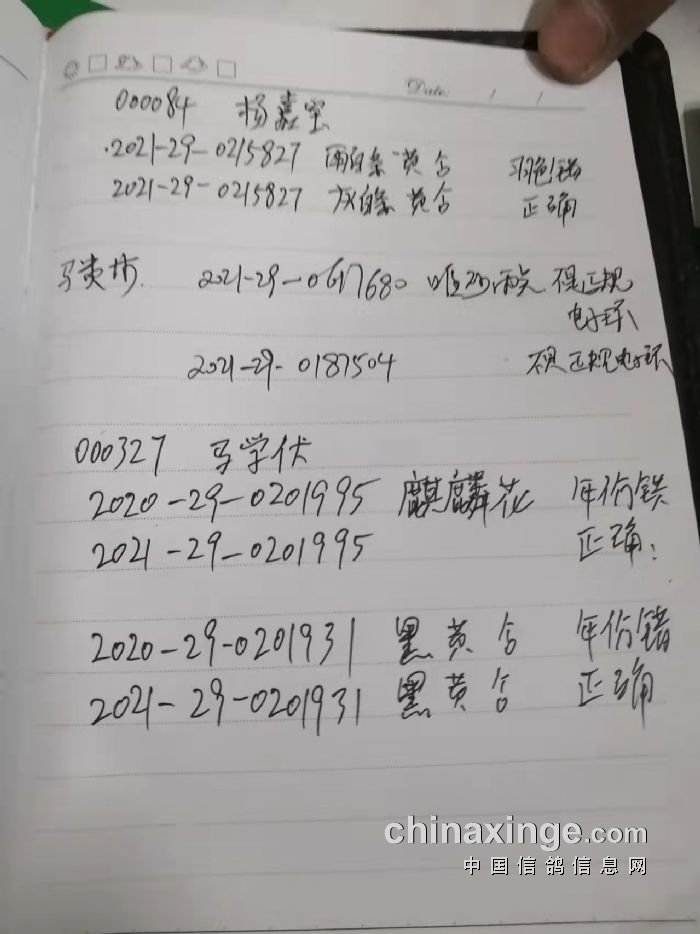 Date: / /
000084 杨嘉宝
2021-29-0215827 雨白条 黄合 羽色错
2021-29-0215827 灰白条 黄合 正确
马贵 2021-29-0617680 雨点 不是正规
电子环
2021-29-0187504 不是正规电子环
000327 马学伏
2020-29-0201995 麒麟花 年份错
2021-29-0201995 正确
2020-29-0201931 黑 黄 合 年份错
2021-29-0201931 黑 黄 合 正确
chinaxinge.com
中国信鸽信息网